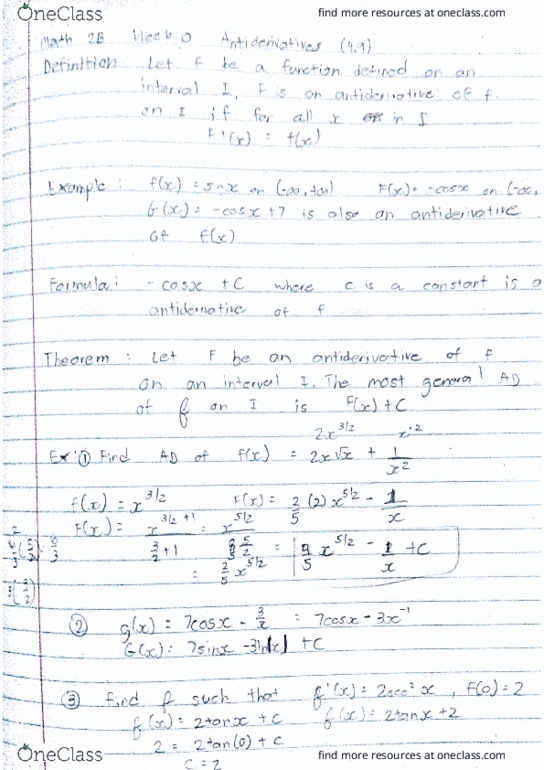 OneClass
find more resources at oneclass.com
Math 2B Week 0 Antiderivatives (4.9)
Definition Let f be a function defined on an
interval I, F is an antiderivative of f
on I if for all x in I
F'(x) = f(x)
Example: f(x) = sinx on (-∞,+∞) F(x) = -cosx on (-∞,
G(x) = -cosx +7 is also an antiderivative
of f(x)
Formula: -cosx +C where c is a constant is a
antiderivative of f
Theorem: Let F be an antiderivative of f
on an interval I. The most general AD
of f on I is F(x)+C
2x^3/2 x^-2
Ex: ① Find AD of f(x) = 2x√x + 1/x²
f(x) = x^3/2 F(x) = 2/5 (2) x^5/2 - 1/x
F(x) = x^(3/2 +1) / (3/2 +1) = x^5/2 / (5/2) = 4/5 x^5/2 - 1/x + C
= 2/5 x^5/2
② g(x) = 7cosx - 3/x = 7cosx - 3x^-1
G(x) = 7sinx - 3ln|x| + C
③ Find f such that f'(x) = 2sec²x, f(0) = 2
f(x) = 2tanx + C f(x) = 2tanx+2
2 = 2tan(0) + C
C = 2
OneClass
find more resources at oneclass.com